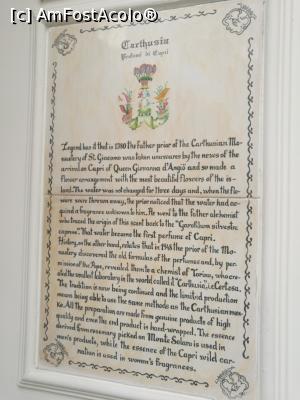 [c] AmFostAcolo®
Carthusia
Profumi di Capri
"Legend has it that in 1380 the father prior of the Carthusian Mo-
nastery of St. Giacomo was taken unawares by the news of the
arrival on Capri of Queen Giovanna d'Angiò and so made a
flower arrangement with the most beautiful flowers of the is-
land. The water was not changed for three days and, when the flo-
wers were thrown away, the prior noticed that the water had ac-
quired a fragrance unknown to him. He went to the father alchemist
who traced the origin of this scent back to the "Garofilum silvestre
caprese". That water became the first perfume of Capri.
History, on the other hand, relates that in 1948 the prior of the Mo-
nastery discovered the old formulas of the perfumes and, by per-
mission of the Pope, revealed them to a chemist of Torino, who cre-
ated the smallest laboratory in the world called it "Carthusia", i.e. Certosa.
The tradition is now being continued and the limited production
means being able to use the same methods as the Carthusian mon-
ks. All the preparation are made from genuine products of high
quality and even the end product is hand-wrapped. The essence
derived from rosemary picked on Monte Solaro is used in
men's products, while the essence of the Capri wild car-
nation is used in women's fragrances.